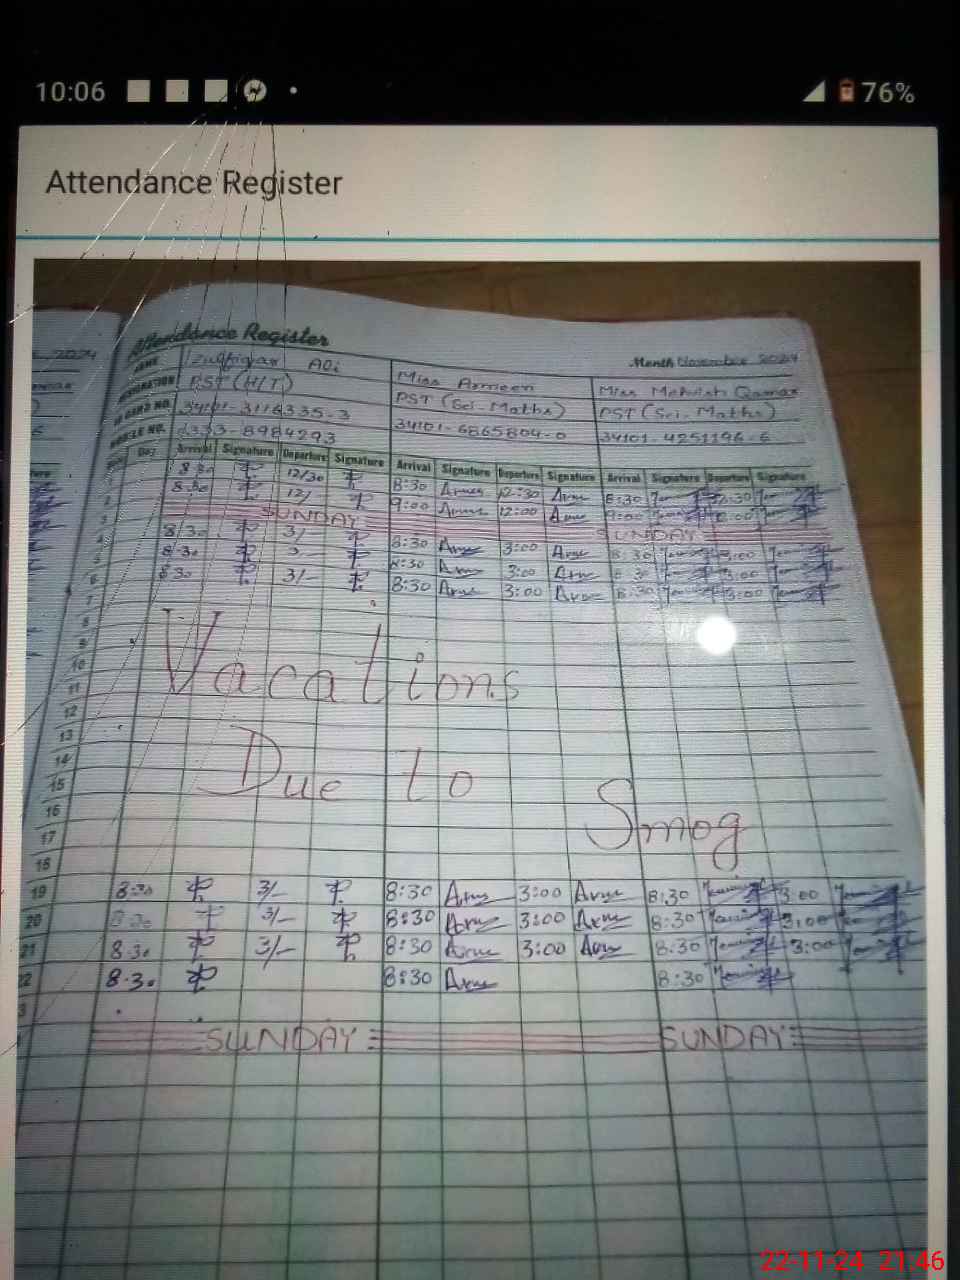 10:06 76%
Attendance Register
Attendance Register
2024 Month November 2024
NAME Zulfiqar Ali Miss Armeen Miss Mehwish Qamar
DESIGNATION PST (H/T) PST (Sci-Maths) PST (Sci-Maths)
ID CARD NO. 34101-3116335-3 34101-6865804-0 34101-4251196-6
MOBILE NO. 0333-8984293
Day Arrival Signature Departure Signature Arrival Signature Departure Signature Arrival Signature Departure Signature
1 8:30 12/30 8:30 12:30 8:30 12:30
2 8:30 12/ 9:00 12:00 9:00 12:00
3 SUNDAY SUNDAY
4 8/30 3/- 8:30 3:00 8:30 3:00
5 8:30 3- 8:30 3:00 8:30 3:00
6 8:30 3/- 8:30 3:00 8:30 3:00
7
8
9
10 Vacations
11
12
13
14 Due to
15
16 Smog
17
18
19 8:30 3/- 8:30 3:00 8:30 3:00
20 8:30 3/- 8:30 3:00 8:30 3:00
21 8:30 3/- 8:30 3:00 8:30 3:00
22 8:30 8:30 8:30
3
SUNDAY SUNDAY
22-11-24 21:46